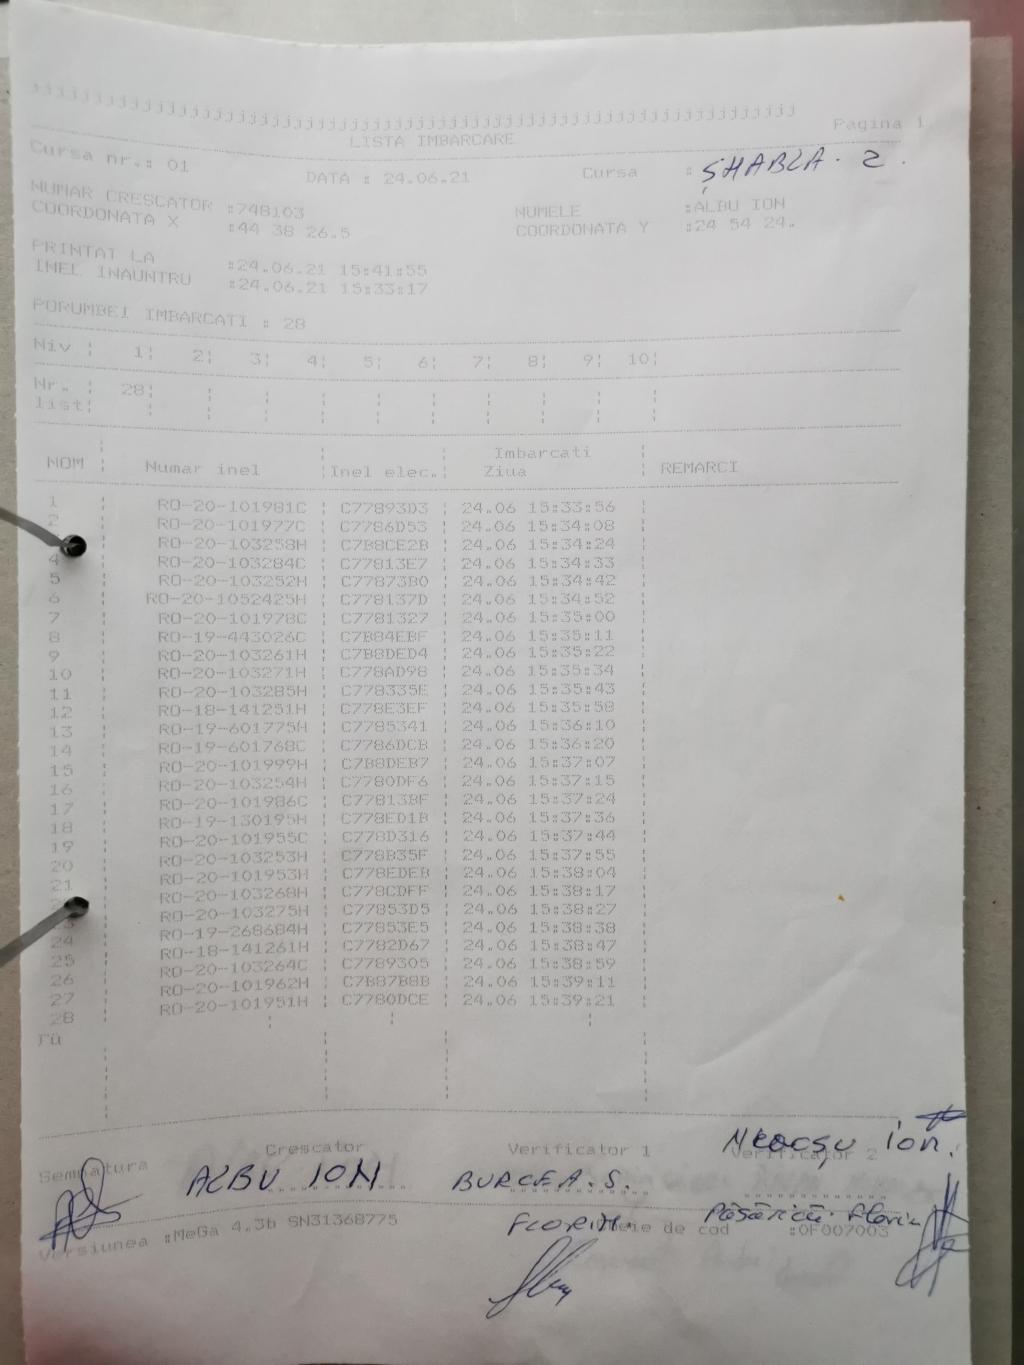 jjjjjjjjjjjjjjjjjjjjjjjjjjjjjjjjjjjjjjjjjjjjjjjjjjjjjjjjjjjjjjjjjjjjjjjj
LISTA IMBARCARE Pagina 1
Cursa nr.: 01 DATA : 24.06.21 Cursa : ȘHABLA. 2.
NUMAR CRESCATOR :748103 NUMELE :ALBU ION
COORDONATA X :44 38 26.5 COORDONATA Y :24 54 24.
PRINTAT LA :24.06.21 15:41:55
INEL INAUNTRU :24.06.21 15:33:17
PORUMBEI IMBARCATI : 28
Niv ¦ 1¦ 2¦ 3¦ 4¦ 5¦ 6¦ 7¦ 8¦ 9¦ 10¦
Nr. ¦ 28¦
list¦
Imbarcati
NOM ¦ Numar inel ¦Inel elec.¦ Ziua ¦ REMARCI
1 RO-20-101981C ¦ C77893D3 ¦ 24.06 15:33:56
2 RO-20-101977C ¦ C7786D53 ¦ 24.06 15:34:08
RO-20-103258H ¦ C7B8CE2B ¦ 24.06 15:34:24
4 RO-20-103284C ¦ C77813E7 ¦ 24.06 15:34:33
5 RO-20-103252H ¦ C77873B0 ¦ 24.06 15:34:42
6 RO-20-1052425H ¦ C778137D ¦ 24.06 15:34:52
7 RO-20-101978C ¦ C7781327 ¦ 24.06 15:35:00
8 RO-19-443026C ¦ C7B84EBF ¦ 24.06 15:35:11
9 RO-20-103261H ¦ C7B8DED4 ¦ 24.06 15:35:22
10 RO-20-103271H ¦ C778AD98 ¦ 24.06 15:35:34
11 RO-20-103285H ¦ C778335E ¦ 24.06 15:35:43
12 RO-18-141251H ¦ C778E3EF ¦ 24.06 15:35:58
13 RO-19-601775H ¦ C7785341 ¦ 24.06 15:36:10
14 RO-19-601768C ¦ C7786DCB ¦ 24.06 15:36:20
15 RO-20-101999H ¦ C7B8DEB7 ¦ 24.06 15:37:07
16 RO-20-103254H ¦ C7780DF6 ¦ 24.06 15:37:15
17 RO-20-101986C ¦ C77813BF ¦ 24.06 15:37:24
18 RO-19-130195H ¦ C778ED1B ¦ 24.06 15:37:36
19 RO-20-101955C ¦ C778D316 ¦ 24.06 15:37:44
20 RO-20-103253H ¦ C778B35F ¦ 24.06 15:37:55
21 RO-20-101953H ¦ C778EDEB ¦ 24.06 15:38:04
RO-20-103268H ¦ C778CDFF ¦ 24.06 15:38:17
23 RO-20-103275H ¦ C77853D5 ¦ 24.06 15:38:27
24 RO-19-268684H ¦ C77853E5 ¦ 24.06 15:38:38
25 RO-18-141261H ¦ C7782D67 ¦ 24.06 15:38:47
26 RO-20-103264C ¦ C7789305 ¦ 24.06 15:38:59
27 RO-20-101962H ¦ C7B87B8B ¦ 24.06 15:39:11
28 RO-20-101951H ¦ C7780DCE ¦ 24.06 15:39:21
rù
Crescator Verificator 1 Verificator 2
Semnatura ALBU ION BURCEA. S. Neacșu Ion.
FLORIN. Păsărică Florin
Versiunea :MeGa 4.3b SN31368775 Cheie de cod :0F007003